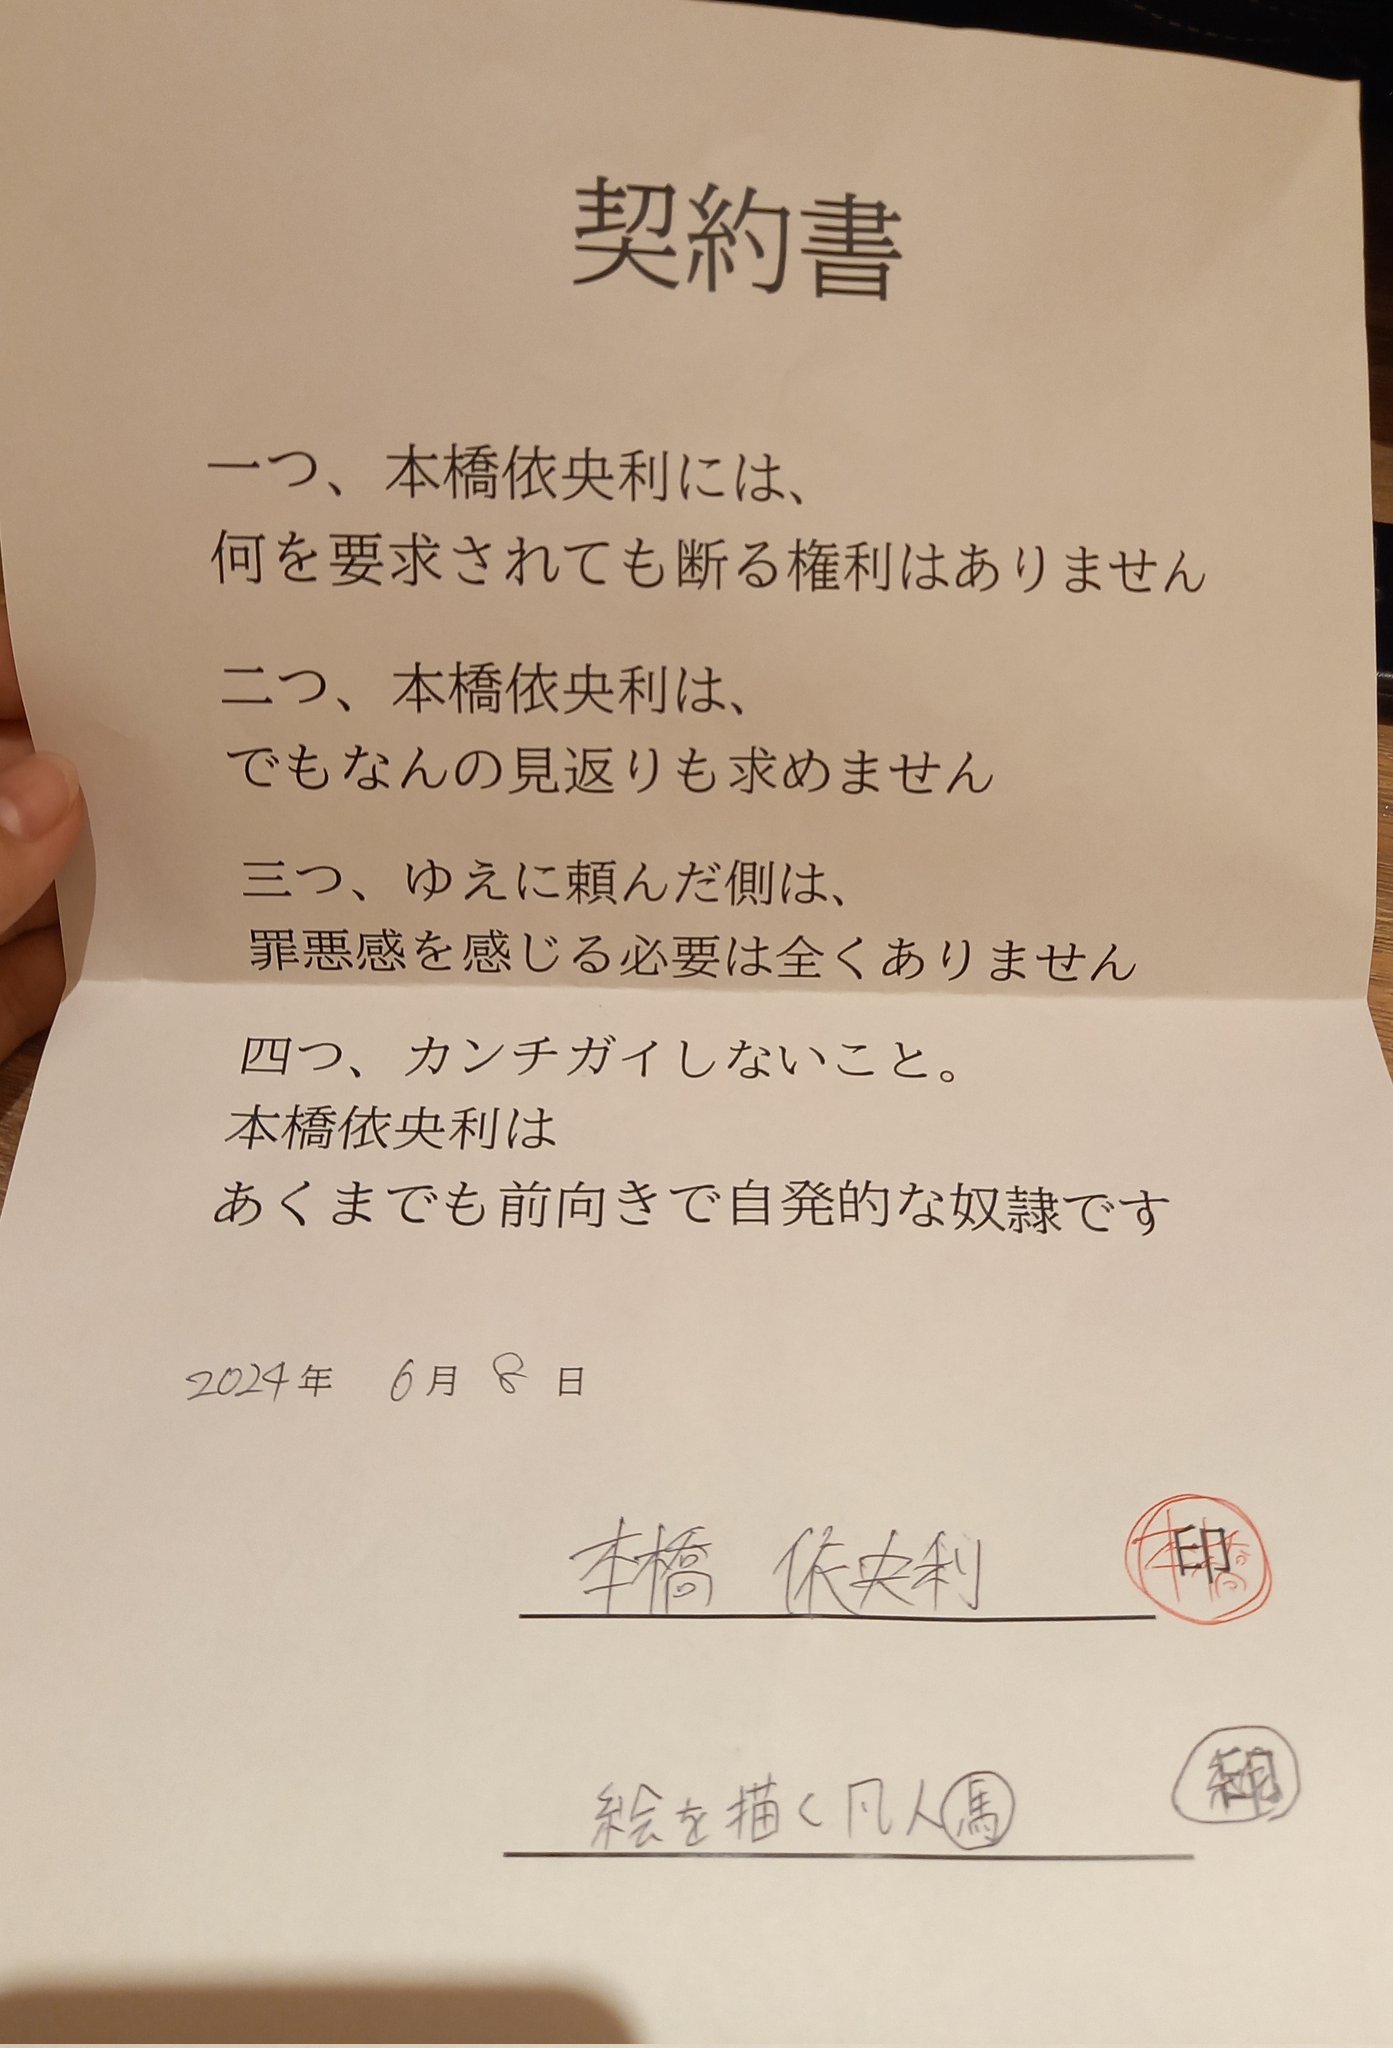 契約書
一つ、本橋依央利には、
何を要求されても断る権利はありません
二つ、本橋依央利は、
でもなんの見返りも求めません
三つ、ゆえに頼んだ側は、
罪悪感を感じる必要は全くありません
四つ、カンチガイしないこと。
本橋依央利は
あくまでも前向きで自発的な奴隷です
2024年 6月 8日
本橋 依央利 本橋 印
絵を描く凡人馬